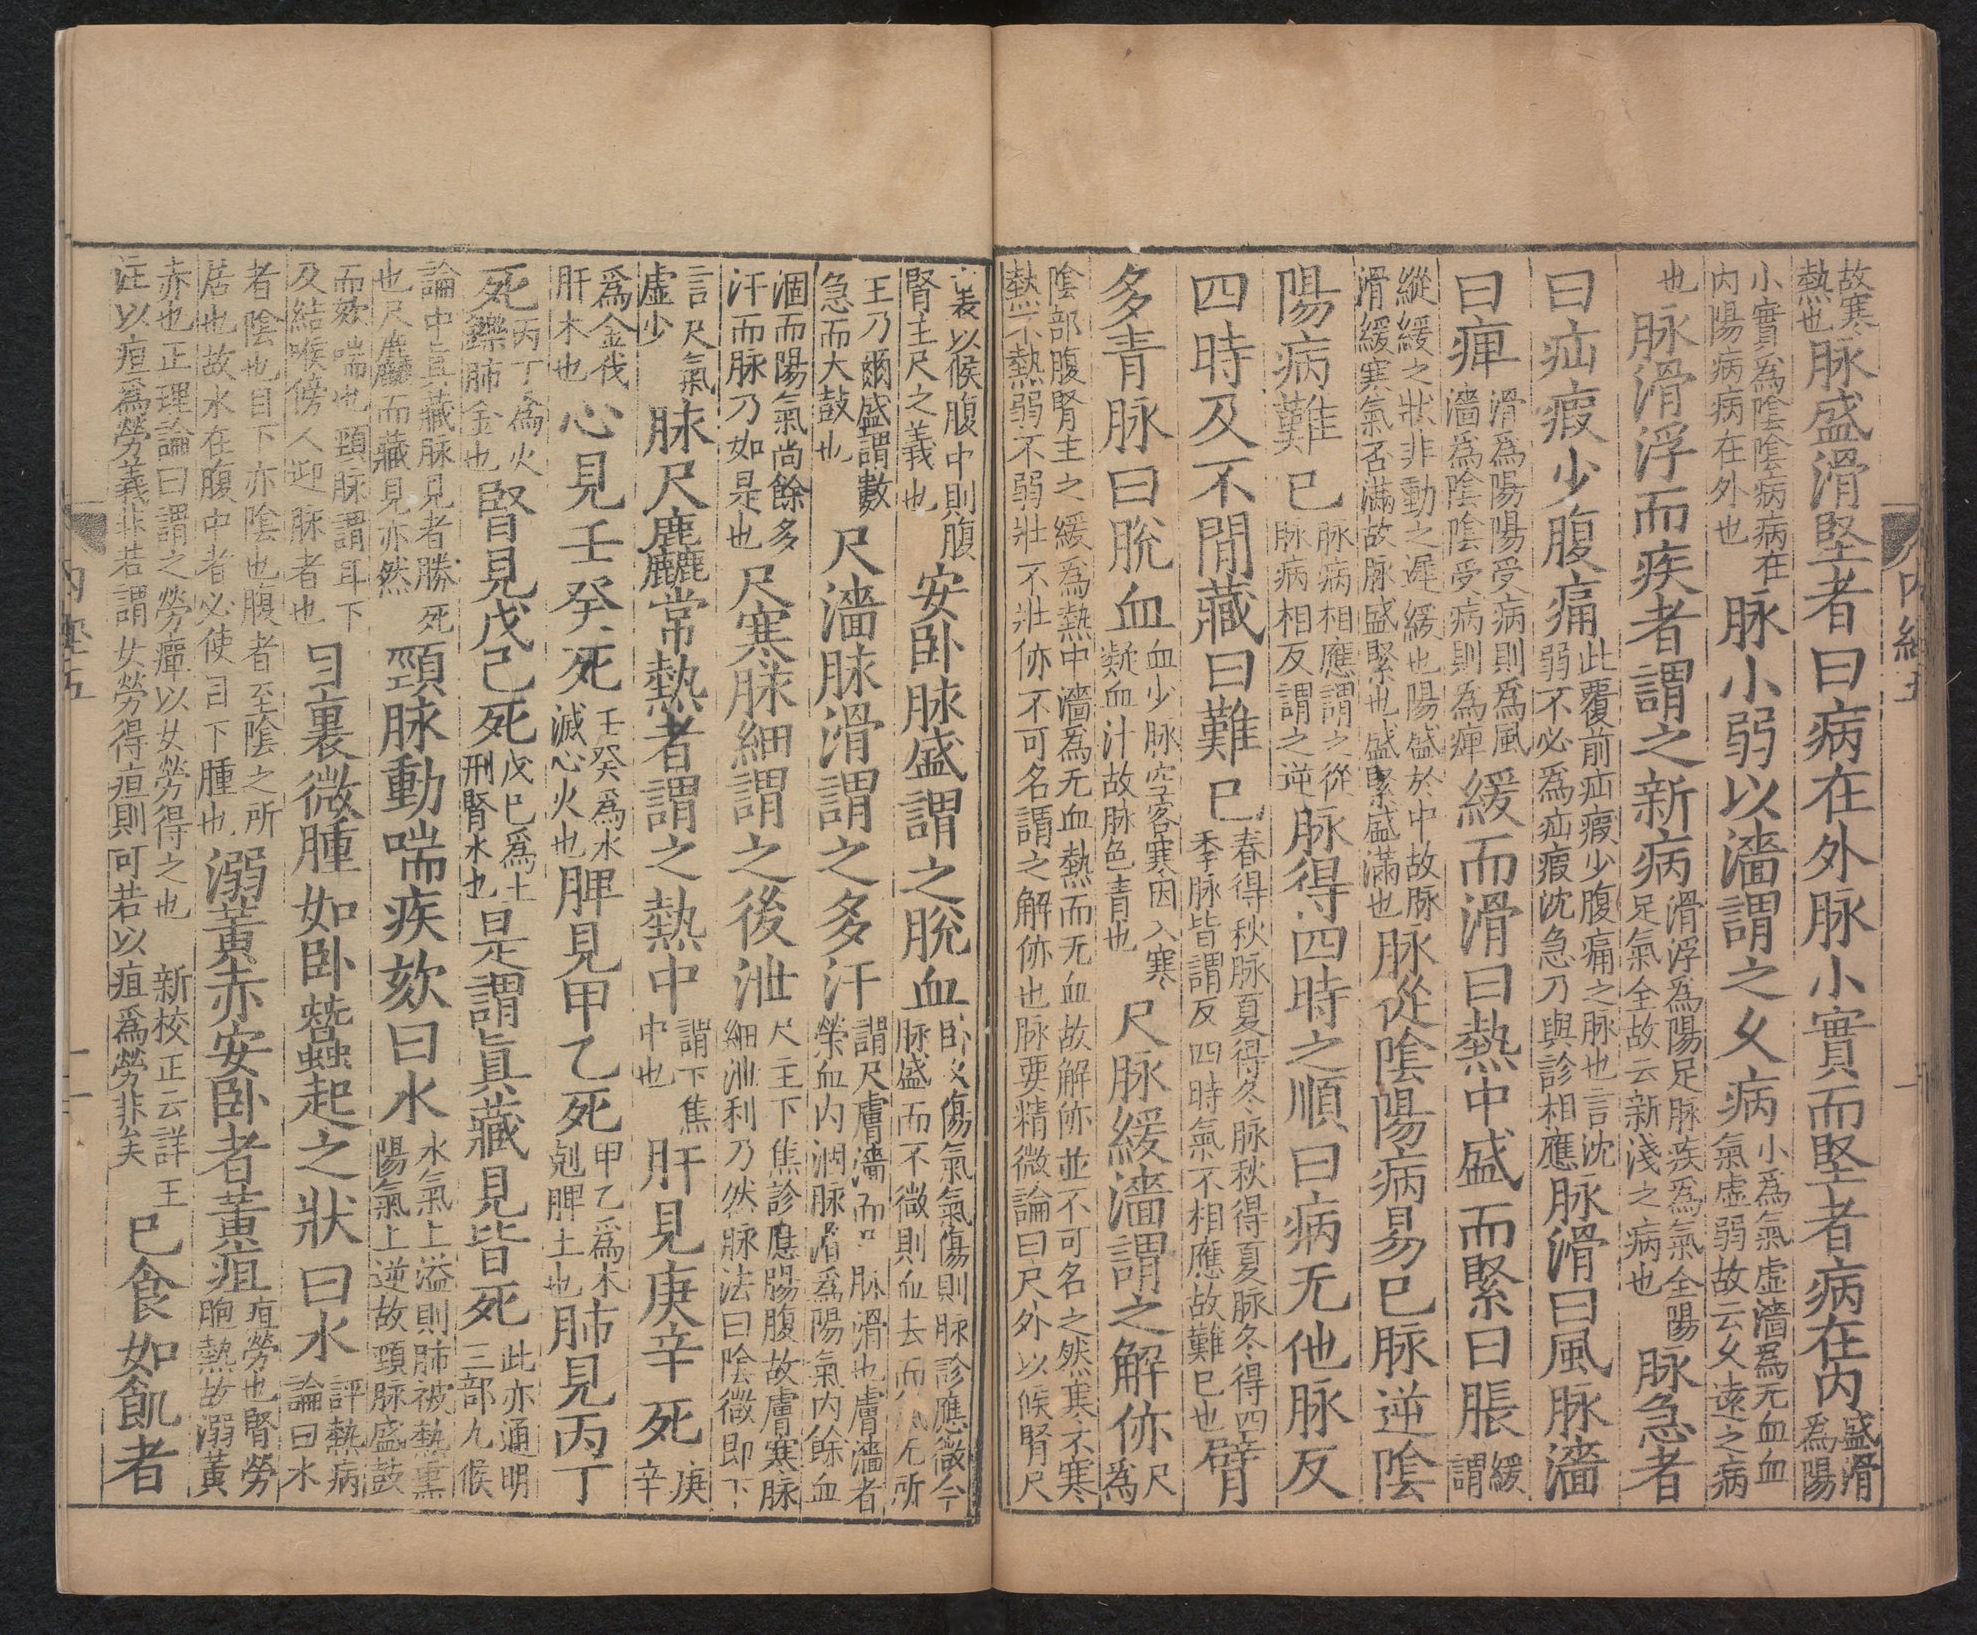 內經五
故寒熱也脉盛滑堅者曰病在外脉小實而堅者病在内盛滑爲陽
小實為陰陰病病在内陽病病在外也脉小弱以濇謂之乆病小為氣虛濇爲无血血氣虛弱故云乆遠之病
也脉滑浮而疾者謂之新病滑浮為陽足脉疾為氣全陽足氣全故云新淺之病也脉急者
曰疝瘕少腹痛此覆前疝瘕少腹痛之脉也言沈弱不必為疝瘕沈急乃與診相應脉滑曰風脉濇
曰痺滑為陽陽受病則為風濇為陰陰受病則為痺緩而滑曰熱中盛而緊曰脹緩謂
縱緩之狀非動之遲緩也陽盛於中故脉滑緩寒氣否滿故脉盛緊也盛緊盛滿也脉從陰陽病易已脉逆陰
陽病難已脉病相應謂之從脉病相反謂之逆脉得四時之順曰病无他脉反
四時及不閒藏曰難已春得秋脉夏得冬脉秋得夏脉冬得四季脉皆謂反四時氣不相應故難已也臂
多青脉曰脫血血少脉空客寒因入寒凝血汁故脉色青也尺脉緩濇謂之解㑊尺為
陰部腹腎主之緩為熱中濇為无血熱而无血故解㑊並不可名之然寒不寒熱不熱弱不弱壯不壯㑊不可名謂之解㑊也脉要精微論曰尺外以候腎尺
裏以候腹中則腹腎主尺之義也安卧脉盛謂之脫血卧久傷氣氣傷則脉診應微今脉盛而不微則血去而氣无所
主乃爾盛謂數急而大鼓也尺濇脉滑謂之多汗謂尺膚濇而尺脉滑也膚濇者榮血内涸脉滑爲陽氣内餘血
涸而陽氣尚餘多汗而脉乃如是也尺寒脉細謂之後泄尺主下焦診應腸腹故膚寒脉細泄利乃然脉法曰陰微即下
言尺氣虛少脉尺麤常熱者謂之熱中謂下焦中也肝見庚辛死庚辛
爲金伐肝木也心見壬癸死壬癸爲水滅心火也脾見甲乙死甲乙爲木剋脾土也肺見丙丁
死丙丁爲火鑠肺金也腎見戊己死戊己爲土刑腎水也是謂眞藏見皆死此亦通明三部九候
論中眞藏脉見者勝死也尺麤而藏見亦然頸脉動喘疾欬曰水水氣上溢則肺被熱熏陽氣上逆故頸脉盛鼓
而欬喘也頸脉謂耳下及結喉傍人迎脉者也目裏微腫如卧蠶起之狀曰水評熱病論曰水
者陰也目下亦陰也腹者至陰之所居也故水在腹中者必使目下腫也溺黃赤安卧者黃疸疸勞也腎勞胞熱故溺黃
赤也正理論曰謂之勞癉以女勞得之也新校正云詳王注以疸爲勞義非若謂女勞得疸則可若以疸爲勞非矣已食如飢者
内經五
十一